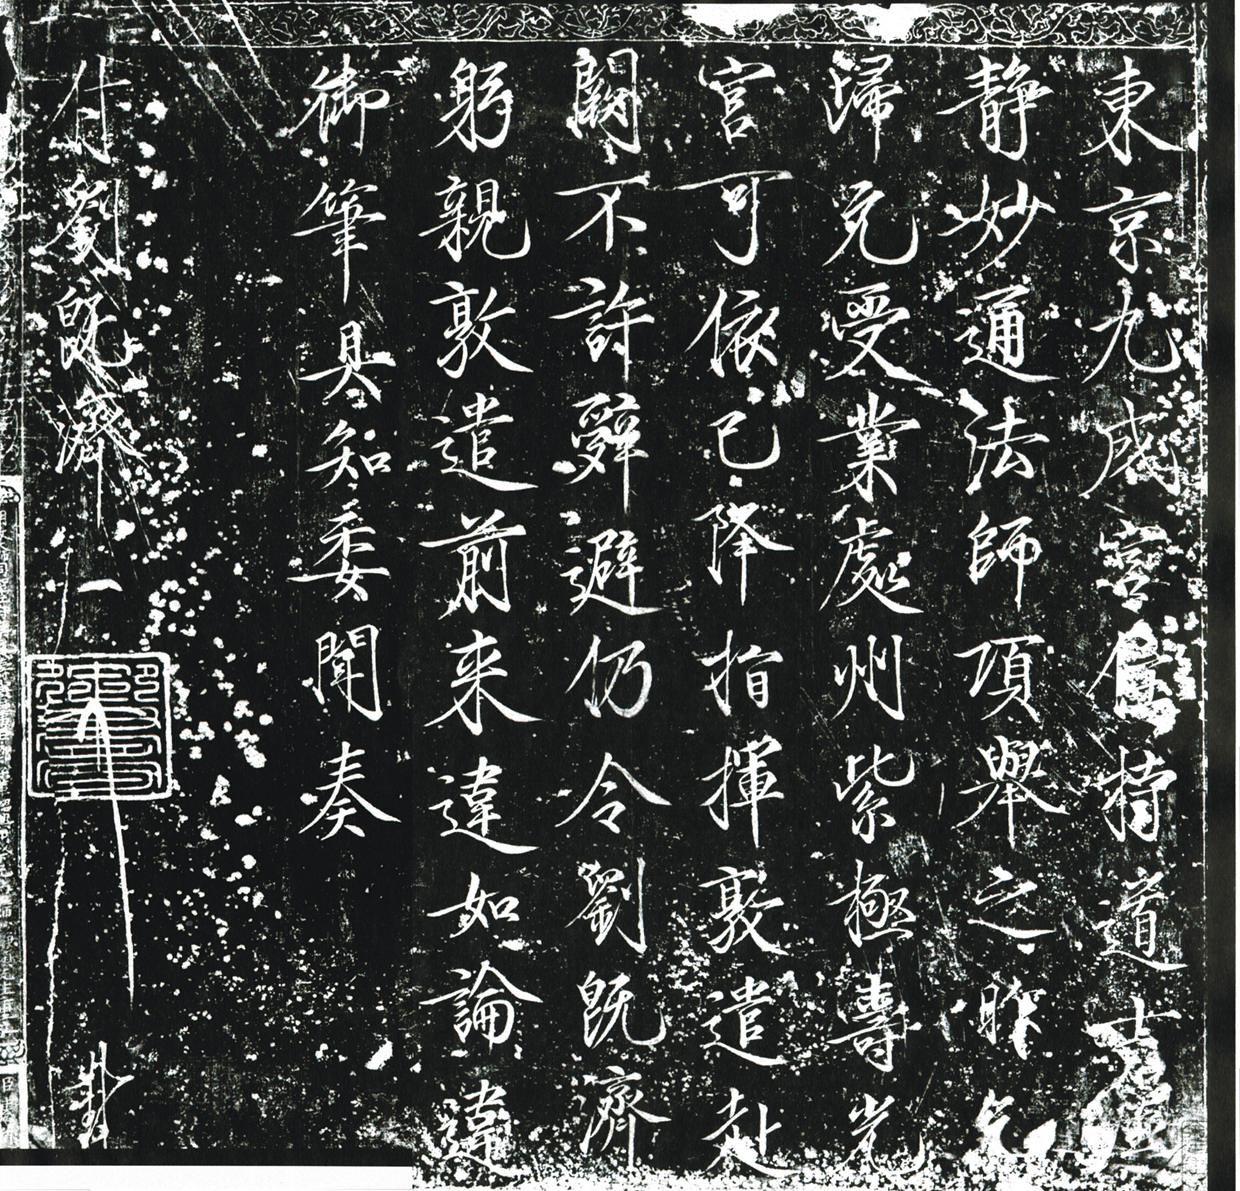 東京九成宮住持道士虛
静妙通法師項舉之昨乞
歸元受業處州紫極壽光
宮可依已降指揮敦遣赴
闕不許辭避仍令劉既濟
躬親敦遣前来違如論違
御筆具知委聞奏
付劉既濟
御書之寶
封